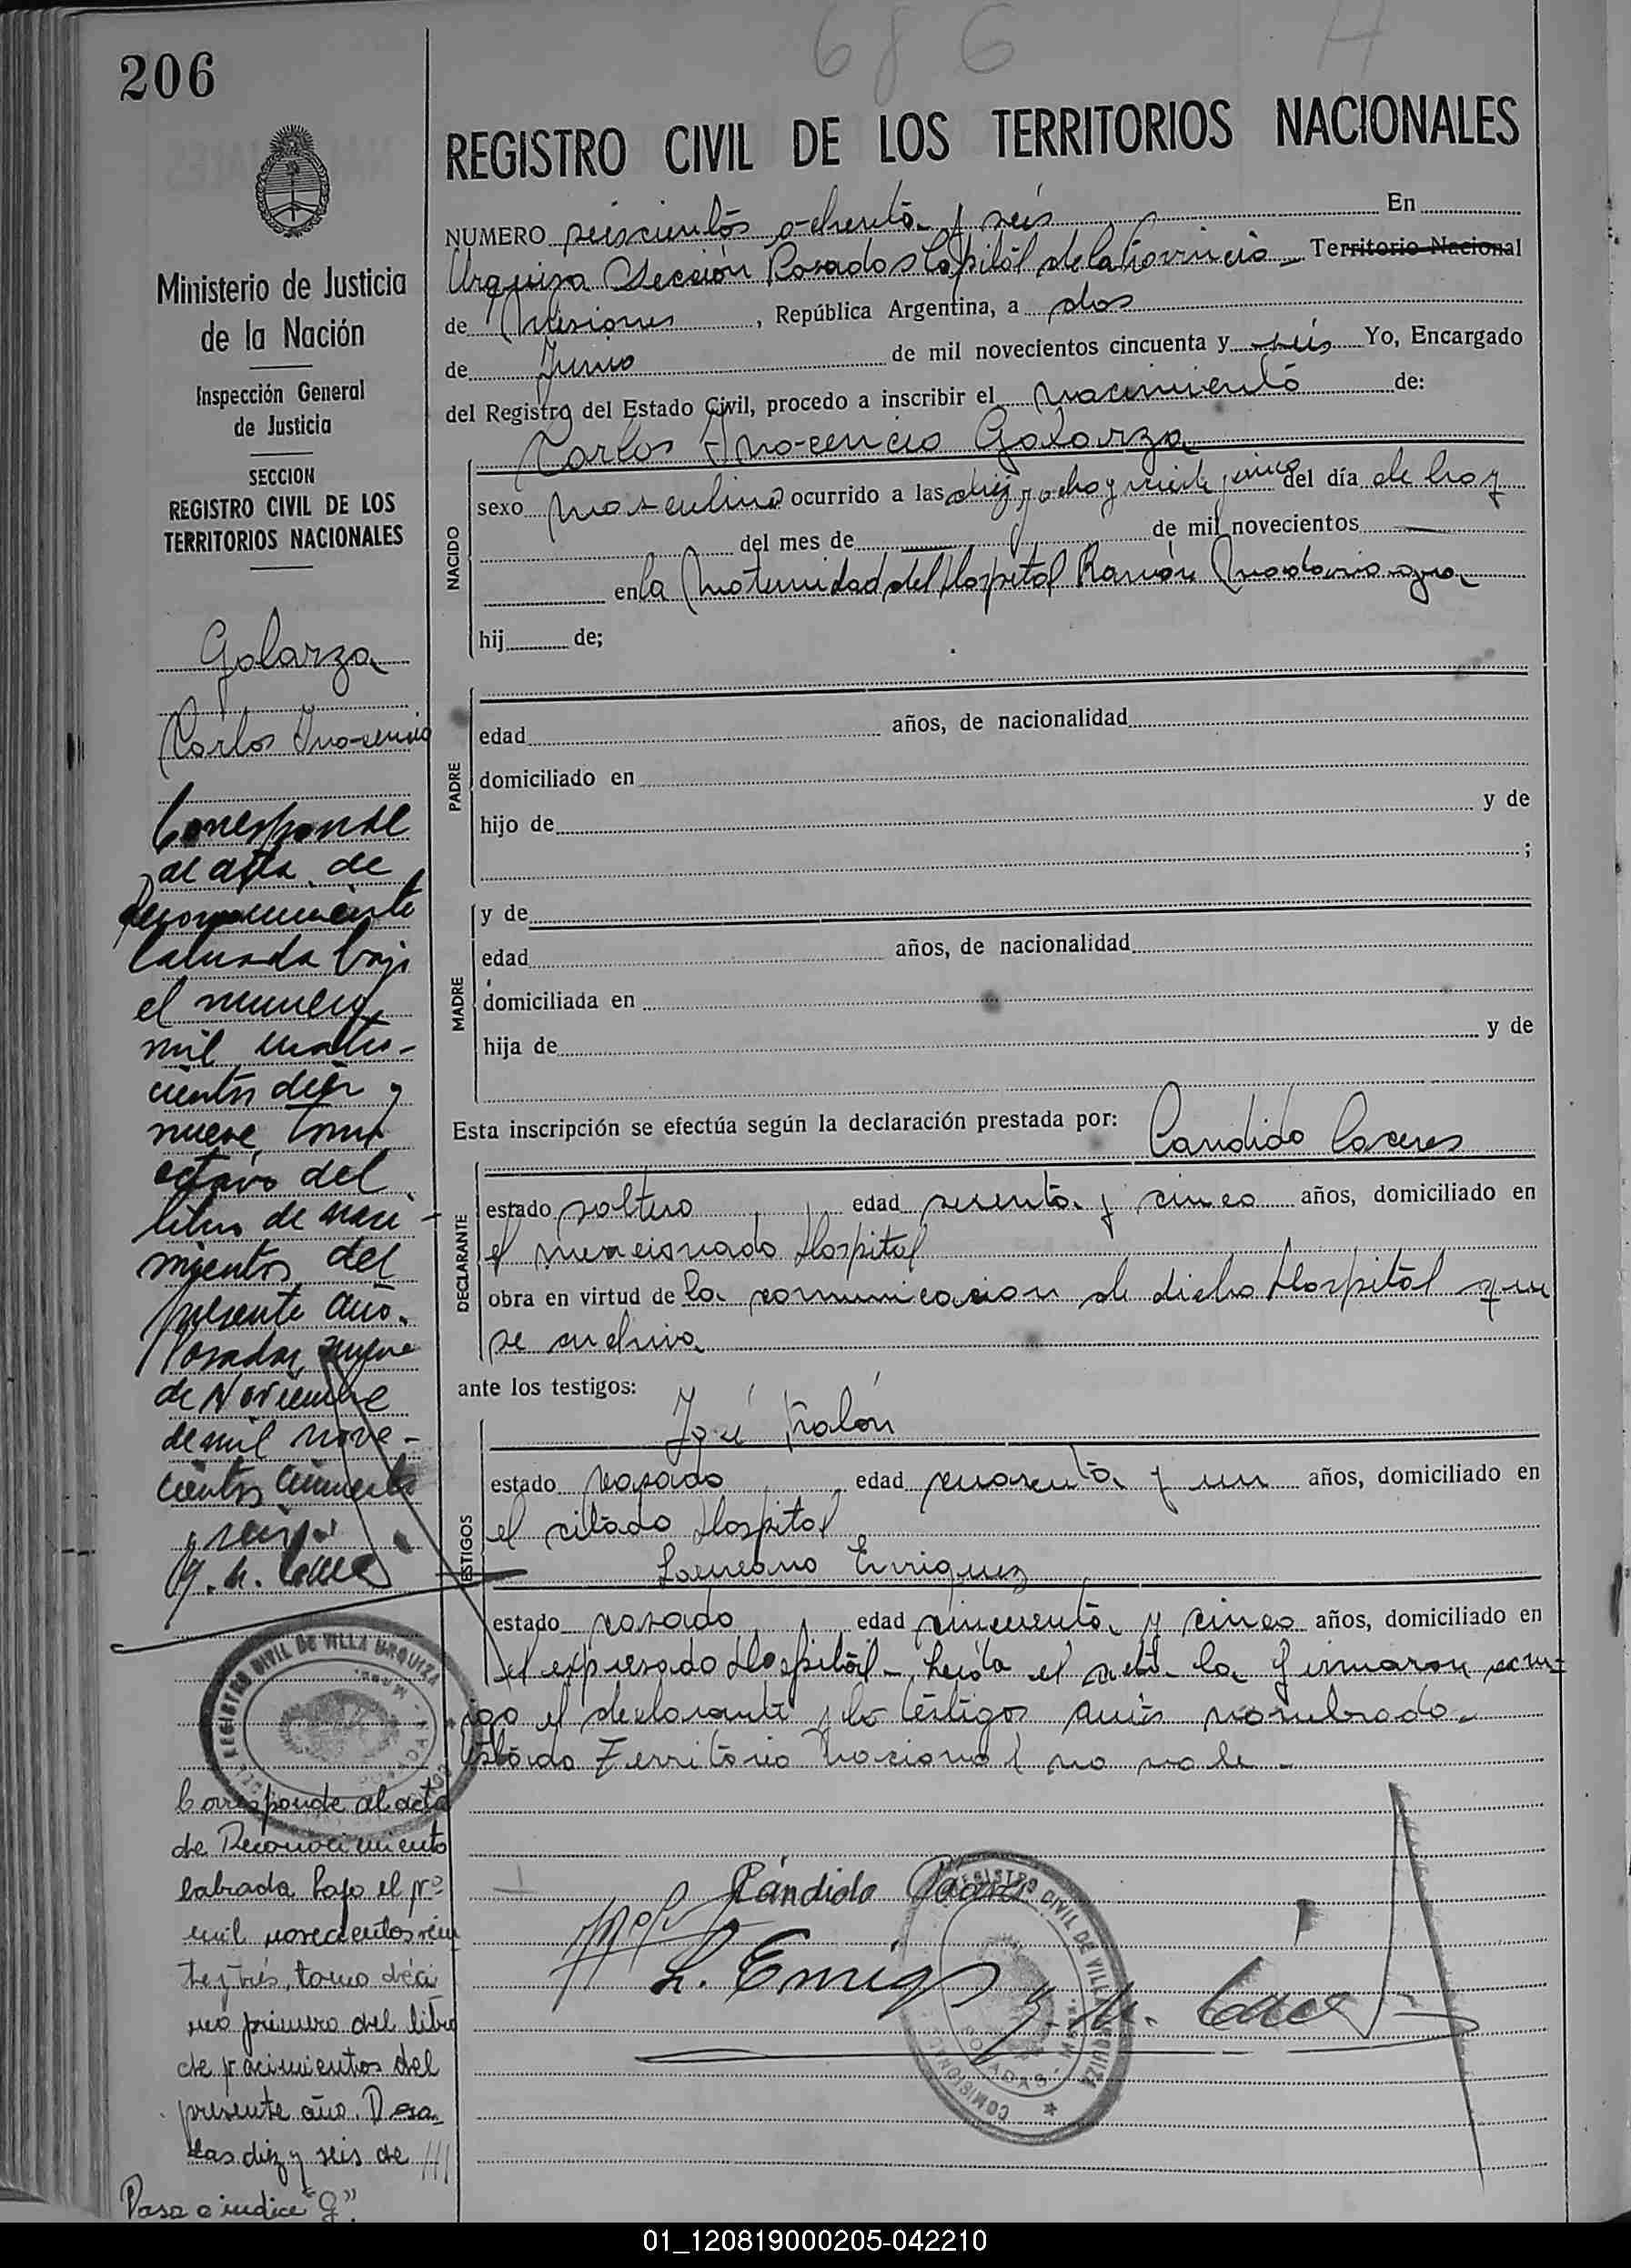 206
686 H
REGISTRO CIVIL DE LOS TERRITORIOS NACIONALES
NUMERO seiscientos ochenta y seis En
Urquiza Sección Posadas Capital de la Provincia Territorio Nacional
de Misiones, República Argentina, a dos
de Junio de mil novecientos cincuenta y seis Yo, Encargado
del Registro del Estado Civil, procedo a inscribir el nacimiento de:
Carlos Inocencio Galarza
NACIDO
sexo masculino ocurrido a las diez y ocho y veinte y cinco del día de hoy
del mes de de mil novecientos
en la Maternidad del Hospital Ramón Madariaga
hij de;
PADRE
edad años, de nacionalidad
domiciliado en
hijo de y de
;
MADRE
y de
edad años, de nacionalidad
domiciliada en
hija de y de
Esta inscripción se efectúa según la declaración prestada por: Candido Caceres
DECLARANTE
estado soltero edad sesenta y cinco años, domiciliado en
el mencionado Hospital
obra en virtud de la comunicacion de dicho Hospital que
se archiva
ante los testigos:
TESTIGOS
José
estado casado edad cuarenta y un años, domiciliado en
el citado Hospital
Laureano Enriquez
estado casado edad cincuenta y cinco años, domiciliado en
el expresado Hospital - Leída el acta la firmaron conmi=
go el declarante y los testigos antes nombrado.
Testado Territorio Nacional no vale -
Cándido
L. Enriq
REGISTRO CIVIL DE VILLA URQUIZA
POSADAS - Mnes.
Ministerio de Justicia
de la Nación
Inspección General
de Justicia
SECCION
REGISTRO CIVIL DE LOS
TERRITORIOS NACIONALES
Galarza
Carlos Inocencio
Corresponde
al acta de
Reconocimiento
labrada bajo
el numero
mil cuatro-
cientos diez y
nueve, tomo
octavo del
libro de naci-
mientos del
presente año.
Posadas, nueve
de Noviembre
de mil nove-
cientos cincuenta
y seis
REGISTRO CIVIL DE VILLA URQUIZA
POSADAS - Mnes.
Corresponde al acta
de Reconocimiento
labrada bajo el nº
mil novecientos vein
te y trés, tomo déci
mo primero del libro
de nacimientos del
presente año. Posa
das diez y seis de ///
Pasa a indice "G".
01_120819000205-042210